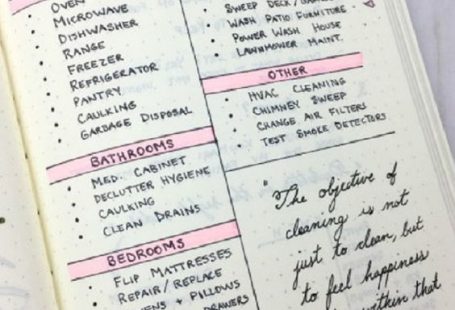 OVEN
MICROWAVE
DISHWASHER
RANGE
FREEZER
REFRIGERATOR
PANTRY
CAULKING
GARBAGE DISPOSAL
BATHROOMS
MED. CABINET
DECLUTTER HYGIENE
CAULKING
CLEAN DRAINS
BEDROOMS
FLIP MATTRESSES
REPAIR/REPLACE
+ PILLOWS
DRAWERS
SWEEP DECK/
WASH PATIO FURNITURE
POWER WASH HOUSE
LAWNMOWER MAINT.
OTHER
HVAC CLEANING
CHIMNEY SWEEP
CHANGE AIR FILTERS
TEST SMOKE DETECTORS
"The objective of
cleaning is not
just to clean, but
to feel happiness
within that